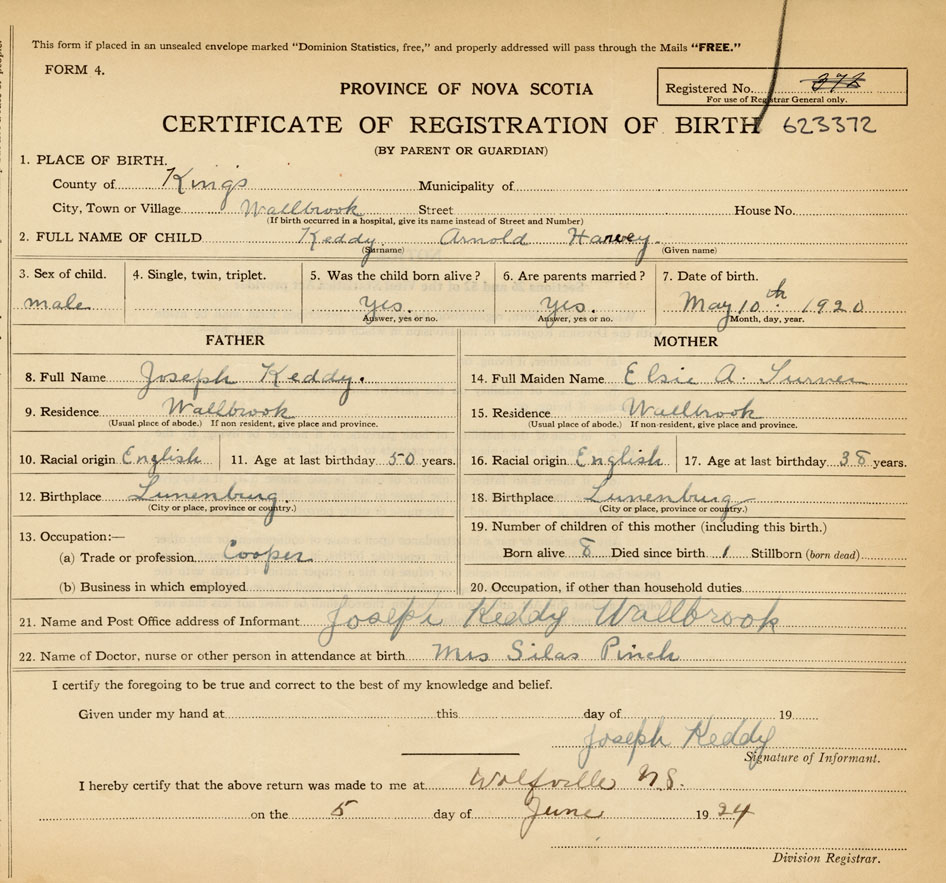 This form if placed in an unsealed envelope marked "Dominion Statistics, free," and properly addressed will pass through the Mails "FREE."
FORM 4.
PROVINCE OF NOVA SCOTIA
Registered No. 372
For use of Registrar General only.
CERTIFICATE OF REGISTRATION OF BIRTH 623372
(BY PARENT OR GUARDIAN)
1. PLACE OF BIRTH.
County of Kings Municipality of
City, Town or Village Wallbrook Street House No.
(If birth occurred in a hospital, give its name instead of Street and Number)
2. FULL NAME OF CHILD Keddy. Arnold Harvey.
(Surname) (Given name)
3. Sex of child. 4. Single, twin, triplet. 5. Was the child born alive? 6. Are parents married? 7. Date of birth.
male Yes. Yes. May 10th 1920
Answer, yes or no. Answer, yes or no. Month, day, year.
FATHER MOTHER
8. Full Name Joseph Keddy. 14. Full Maiden Name Elsie A.
9. Residence Wallbrook 15. Residence Wallbrook
(Usual place of abode.) If non resident, give place and province. (Usual place of abode.) If non-resident, give place and province.
10. Racial origin English 11. Age at last birthday 50 years. 16. Racial origin English 17. Age at last birthday 38 years.
12. Birthplace Lunenburg. 18. Birthplace Lunenburg
(City or place, province or country.) (City or place, province or country.)
13. Occupation:— 19. Number of children of this mother (including this birth.)
(a) Trade or profession Cooper Born alive 8 Died since birth 1 Stillborn (born dead)
(b) Business in which employed 20. Occupation, if other than household duties
21. Name and Post Office address of Informant Joseph Keddy Wallbrook
22. Name of Doctor, nurse or other person in attendance at birth Mrs Silas Pinch
I certify the foregoing to be true and correct to the best of my knowledge and belief.
Given under my hand at this day of 19
Joseph Keddy
Signature of Informant.
I hereby certify that the above return was made to me at Wolfville N.S.
on the 5 day of June 1924
Division Registrar.